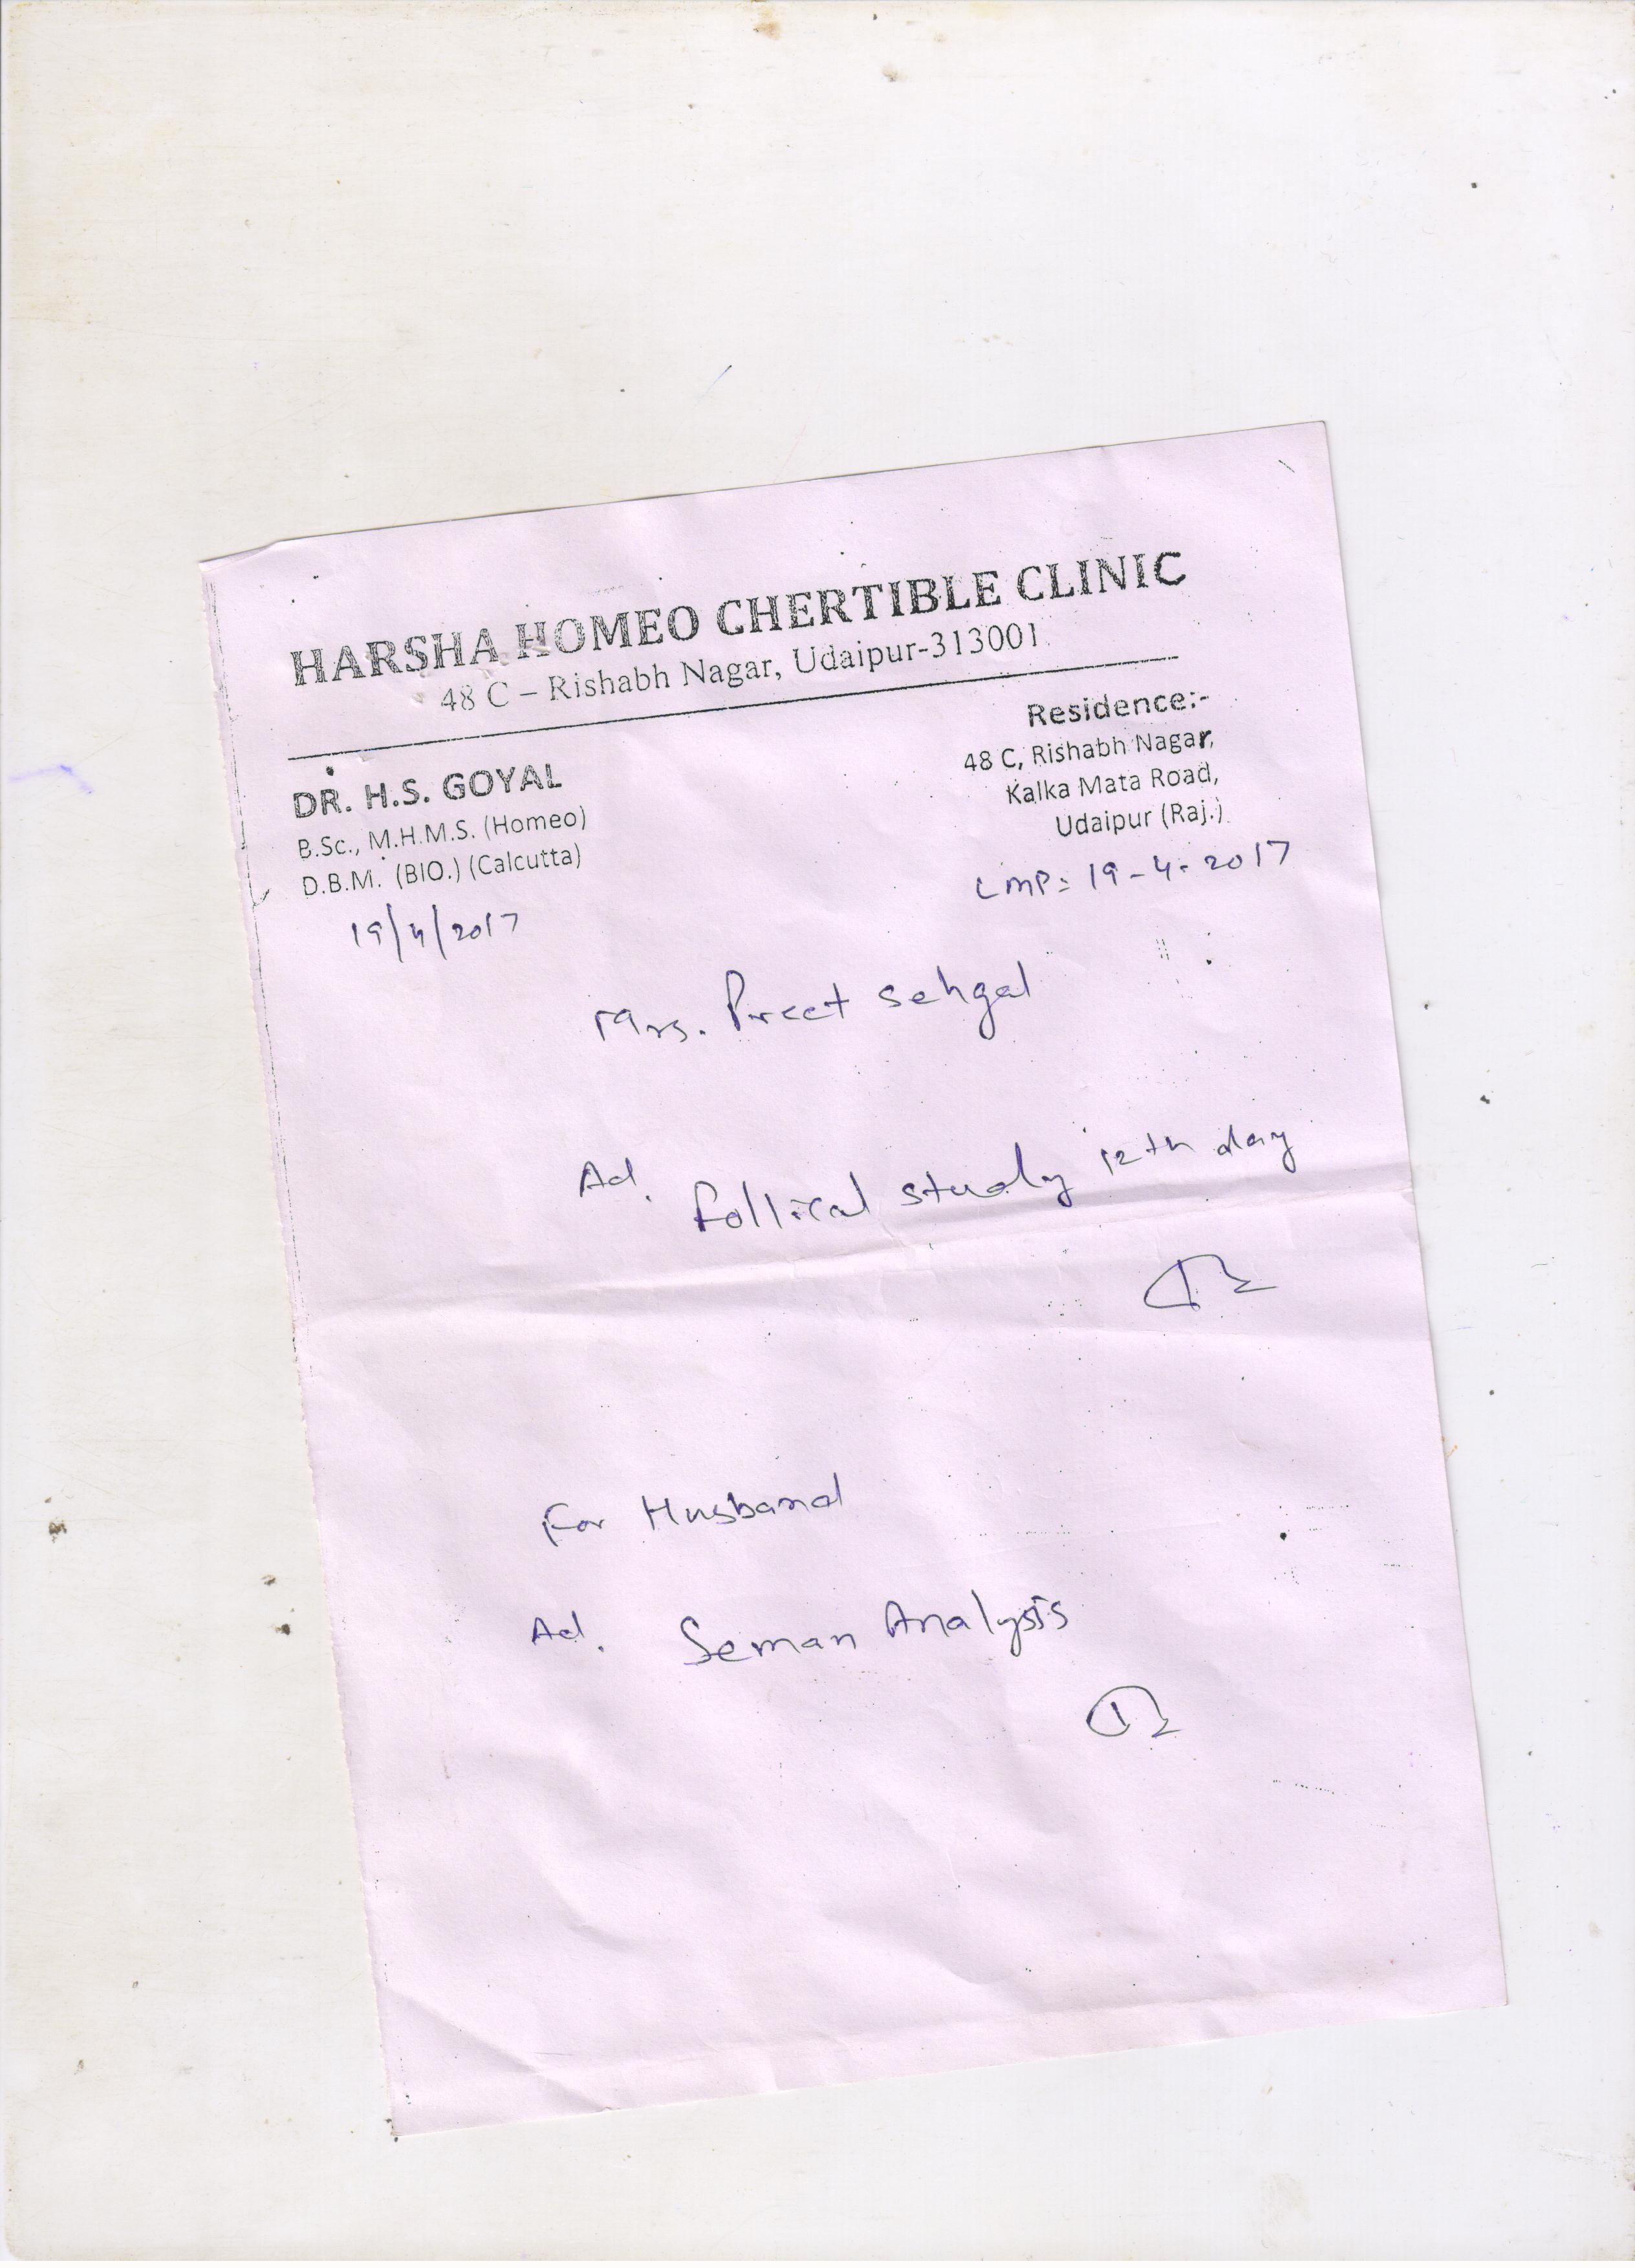 HARSHA HOMEO CHERTIBLE CLINIC
48 C – Rishabh Nagar, Udaipur-313001
DR. H.S. GOYAL
B.Sc., M.H.M.S. (Homeo)
D.B.M. (BIO.) (Calcutta)
Residence:-
48 C, Rishabh Nagar,
Kalka Mata Road,
Udaipur (Raj.)
19/4/2017
LMP= 19-4-2017
Mrs. Preet Sehgal
Ad. follical study 12th day
For Husband
Ad. Seman Analysis